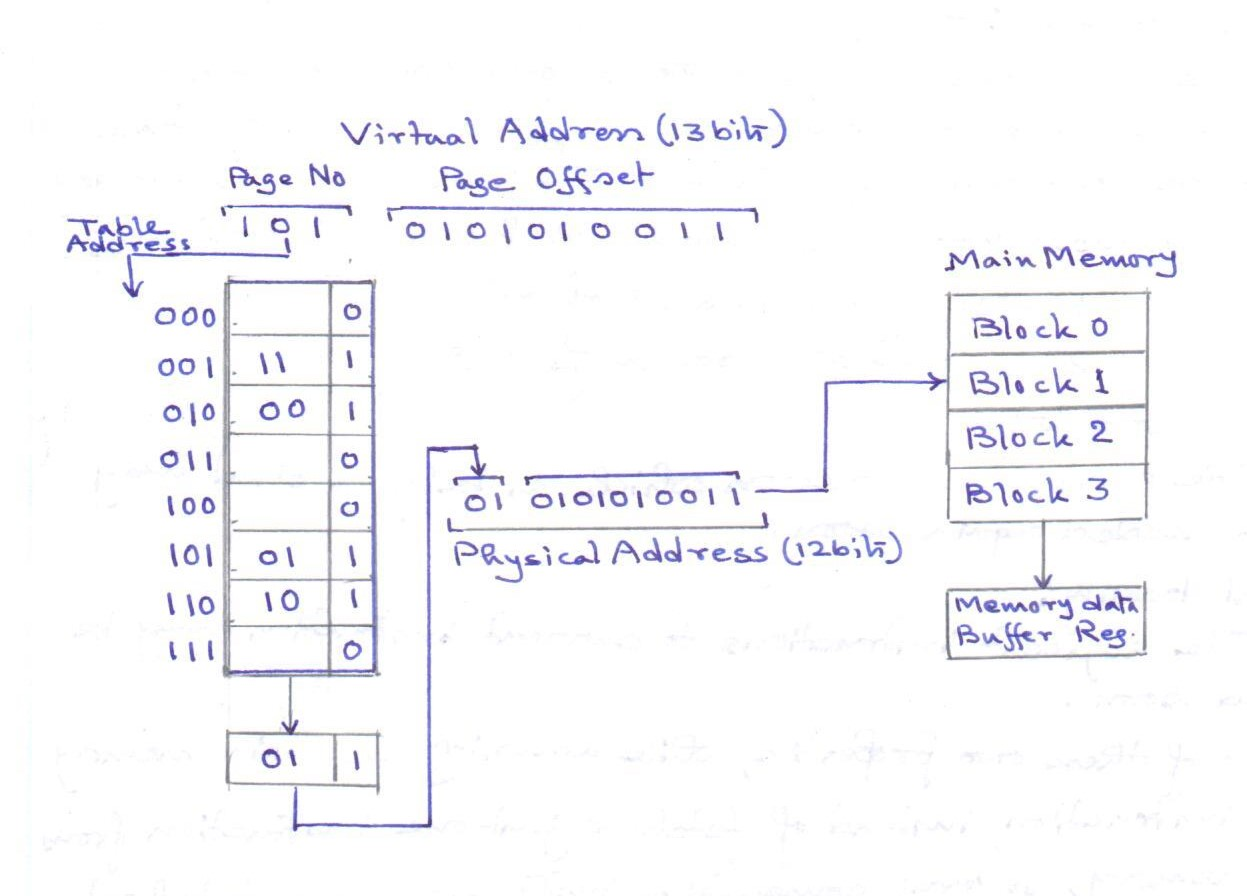 Virtual Address (13 bits)
Page No Page Offset
Table
Address
1 0 1 0 1 0 1 0 1 0 0 1 1
000 0
001 11 1
010 00 1
011 0
100 0
101 01 1
110 10 1
111 0
01 1
01 0101010011
Physical Address (12 bits)
Main Memory
Block 0
Block 1
Block 2
Block 3
Memory data
Buffer Reg.